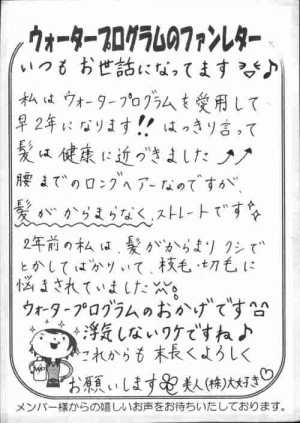 ウォータープログラムのファンレター
いつも お世話になってます♪
私は ウォータープログラムを愛用して
早2年になります!! はっきり言って
髪は健康に近づきました↗↗
腰までのロングヘアーなのですが、
髪がからまらなく、ストレートです☆
2年前の私は、髪がからまり クシで
とかしてばかりいて、枝毛・切毛に
悩まされていました
ウォータープログラムのおかげです^^
浮気しないワケですね♪
これからも 末長くよろしく
お願いします 美人(株)大好き♡
メンバー様からの嬉しいお声をお待ちいたしております。